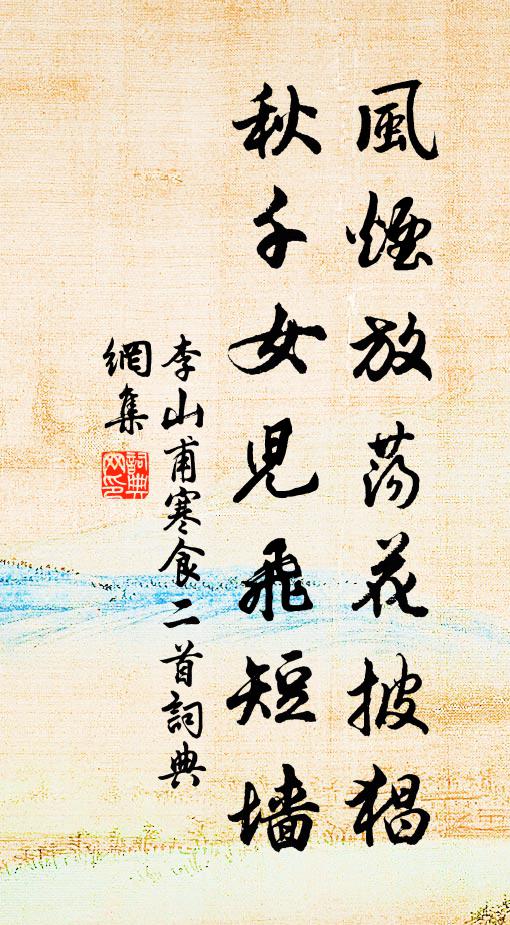 風煙放蕩花披猖
秋千女兒飛短墻
李山甫寒食二首詞典
網集
詞典
网印